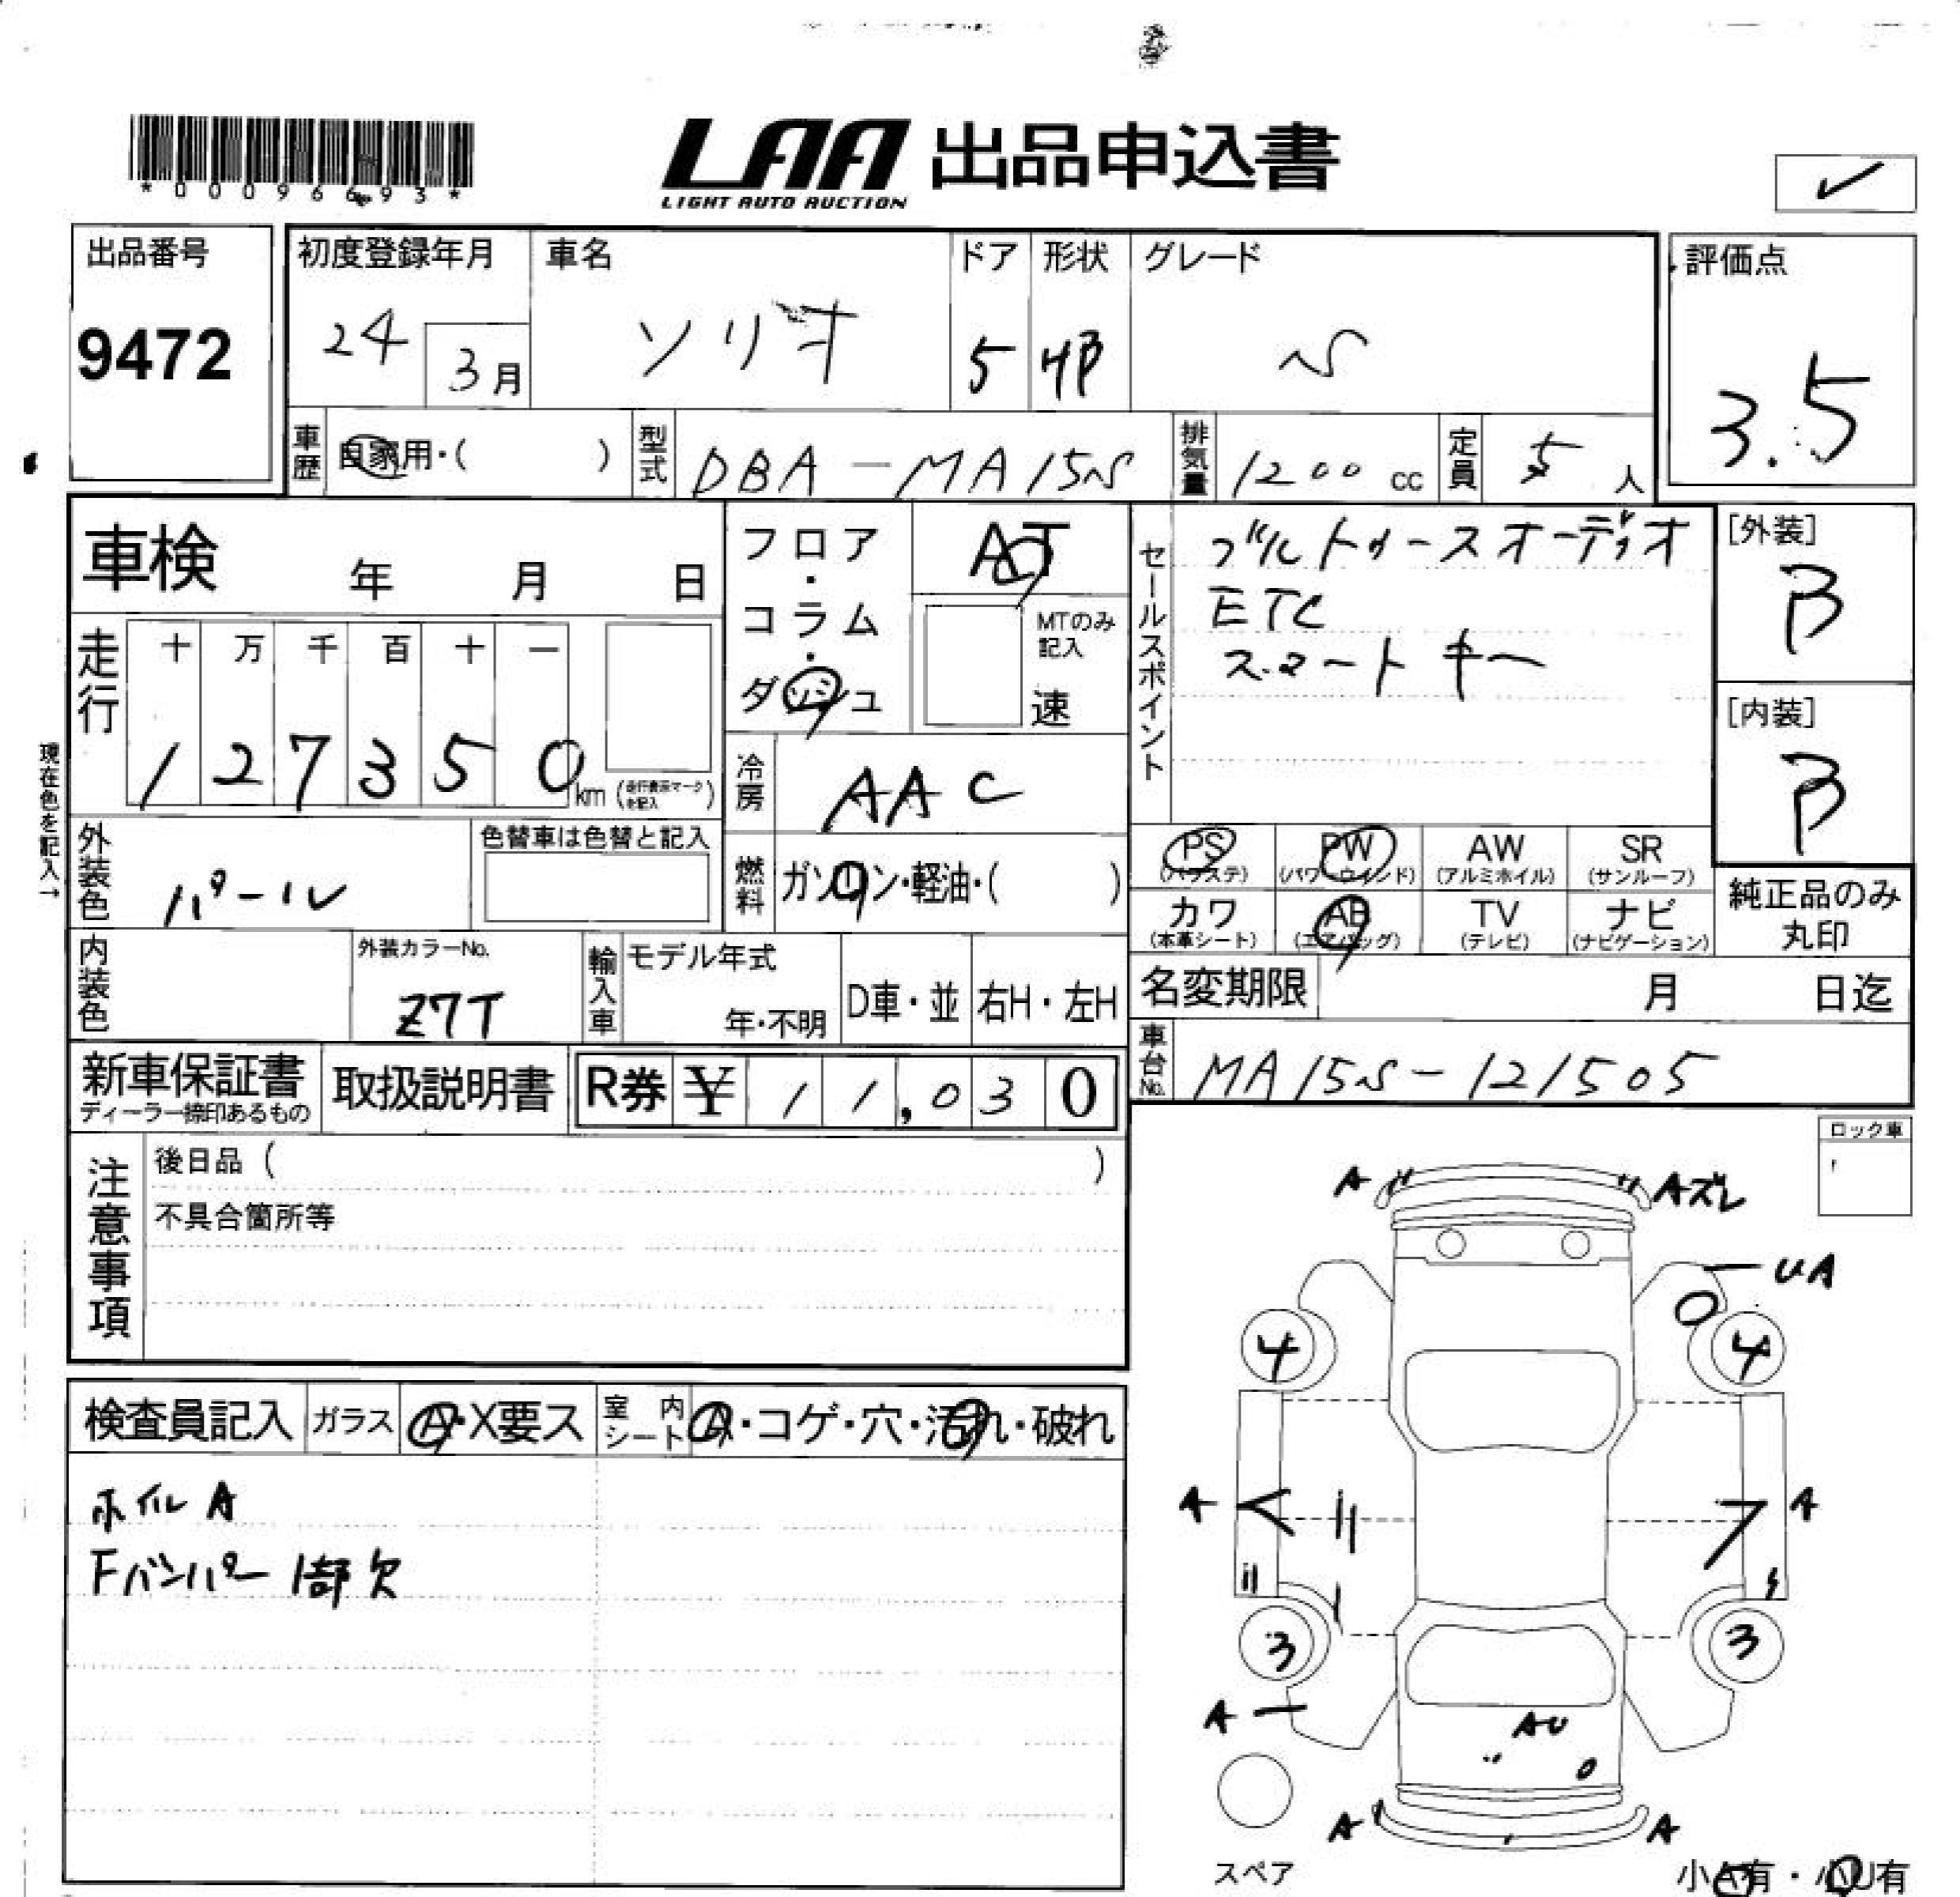 *00096693*
LAA 出品申込書
LIGHT AUTO AUCTION
出品番号
9472
初度登録年月
24
3月
車名
ソリオ
ドア
5
形状
HB
グレード
S
評価点
3.5
車歴
自家用・( )
型式
DBA-MA15S
排気量
1200 cc
定員
5 人
車検 年 月 日
走行
十 万 千 百 十 一
1 2 7 3 5 0 km
(走行表示マークを記入)
現在色を記入→
外装色
パール
色替車は色替と記入
内装色
外装カラーNo.
Z7T
フロア・コラム・ダッシュ
AT
MTのみ記入
速
冷房
AAC
燃料
ガソリン・軽油・( )
輸入車
モデル年式
年・不明
D車・並
右H・左H
セールスポイント
ブルトゥースオーディオ
ETC
スマートキー
[外装]
B
[内装]
B
PS
(パワステ)
PW
(パワーウインド)
AW
(アルミホイル)
SR
(サンルーフ)
カワ
(本革シート)
AB
(エアバッグ)
TV
(テレビ)
ナビ
(ナビゲーション)
純正品のみ
丸印
名変期限 月 日迄
車台No.
MA15S-121505
新車保証書
ディーラー捺印あるもの
取扱説明書
R券 ¥ 11,030
注意事項
後日品 ( )
不具合箇所等
検査員記入
ガラス
A・X要ス
室内シート
A・コゲ・穴・汚れ・破れ
ホイルA
Fバンパー1部欠
ロック車
A
Aズレ
UA
4
4
A
A
3
3
A
AU
A
A
スペア
小A有・小U有